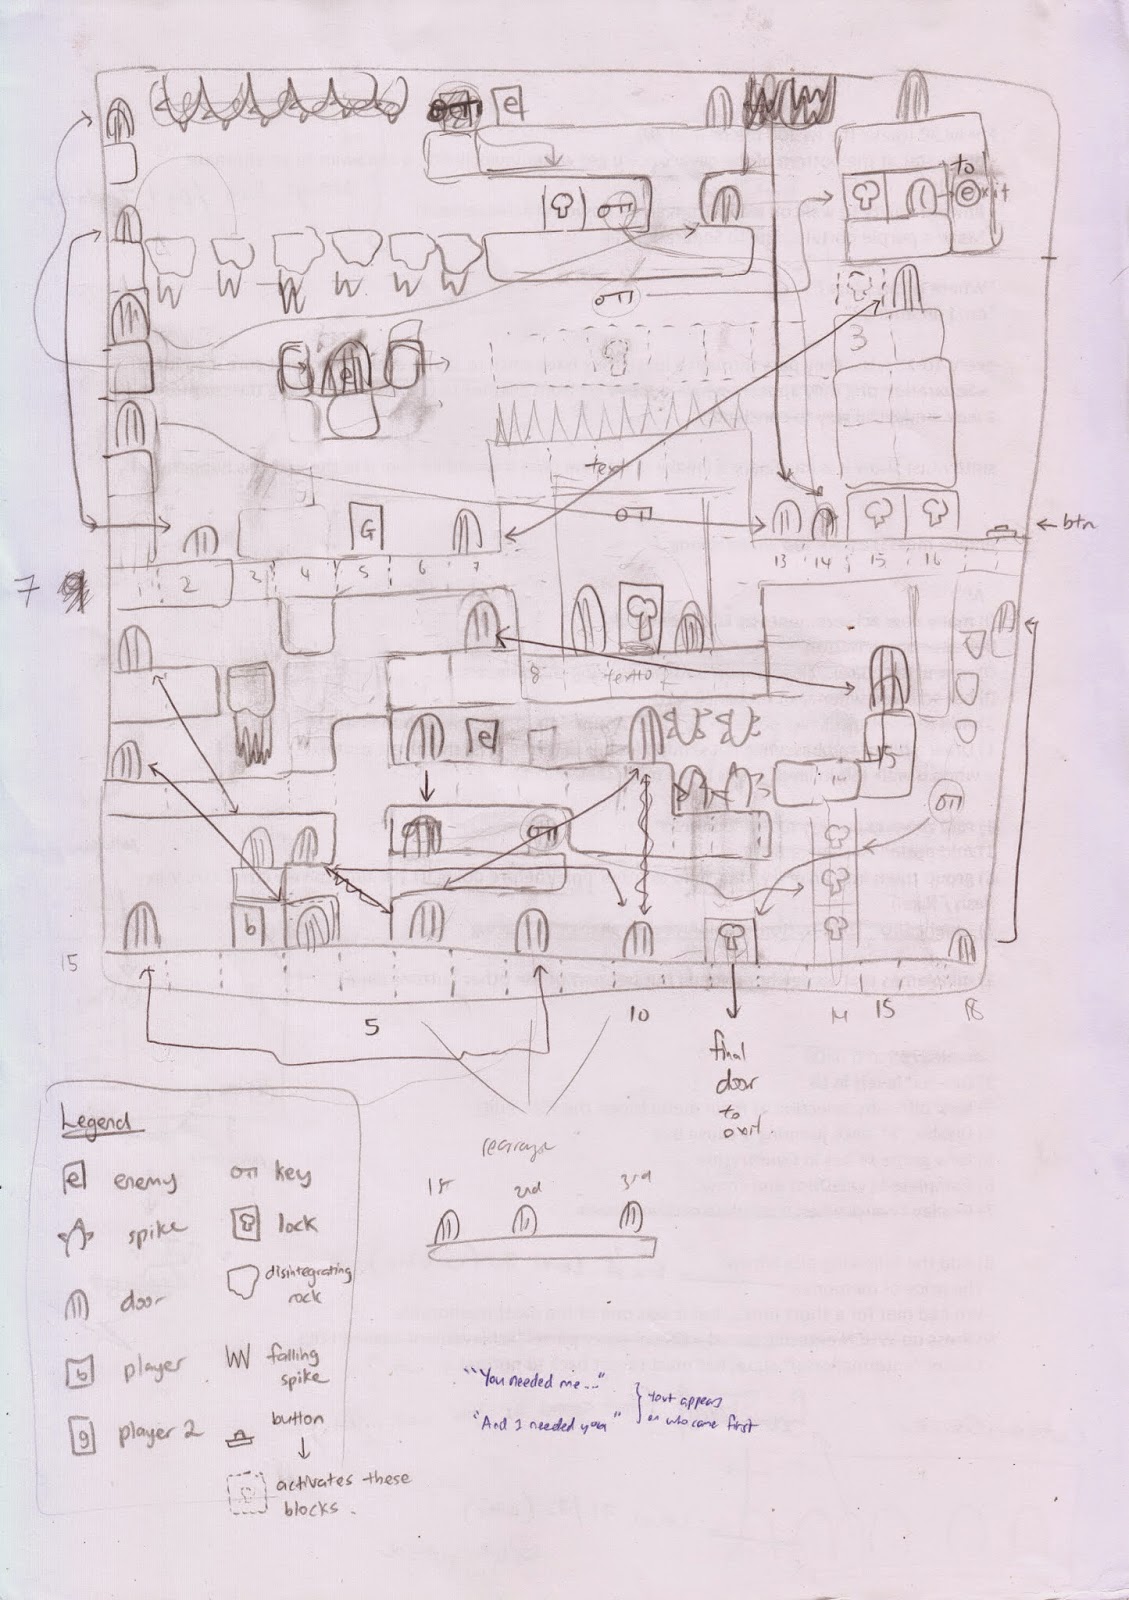 e
to
e xit
3
text 1
G
btn
13 14 15 16
7
2 3 4 5 6 7
8
text 10
e
15
14
b
15
5
10
14
15
18
final
door
to
exit
Legend
e enemy
spike
door
b player
g player 2
key
lock
disintegrating
rock
falling
spike
button
activates these
blocks.
1st
2nd
3rd
"You needed me..."
"And I needed you"
text appears
on who came first